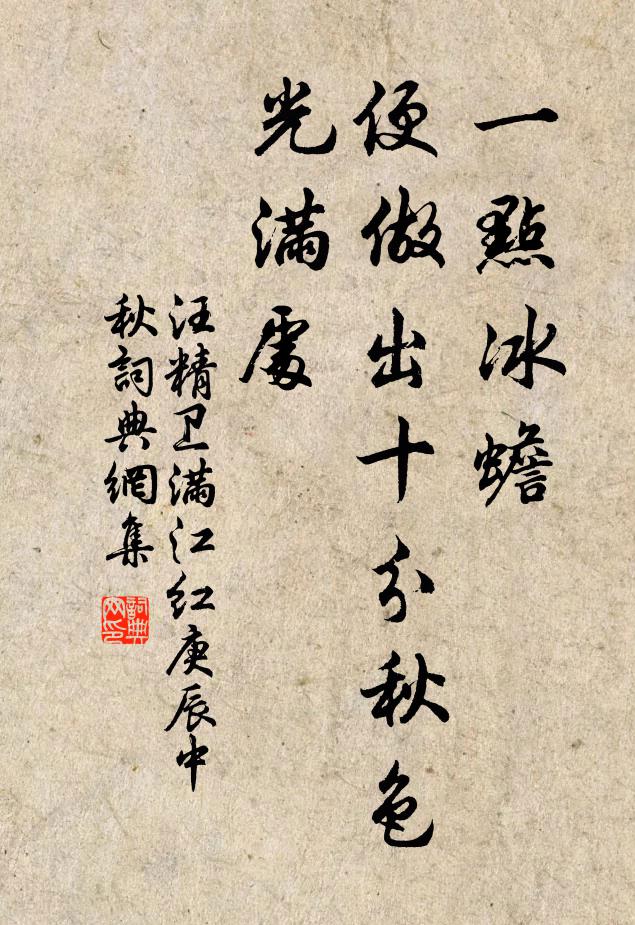 一點冰蟾
便做出十分秋色
光滿處
汪精卫滿江红庚辰中
秋詞典網集
詞典
网印